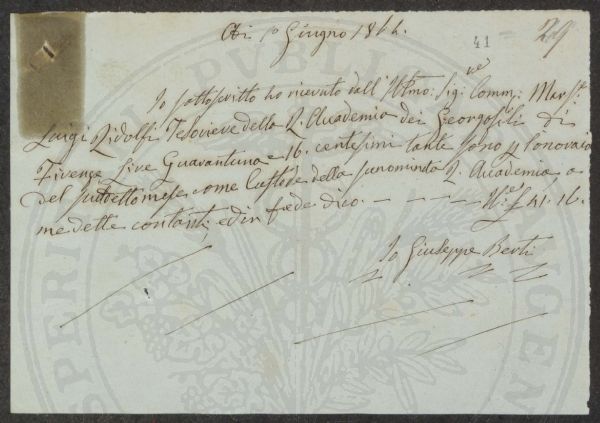 Adi 1o Giugno 1864.
41 = 29
Io sottoscritto ho ricevuto dall' Illmo: Sigre Comm: Marse:
Luigi Ridolfi Tesoriere della R. Accademia dei Georgofili di
Firenze Lire Quarantuna e 16. centesimi tante sono p l'onorario
del sudetto mese come Custode della sunominta R. Accademia, a
me dette contanti, ed in fede dico. — — — — £ 41. 16.
Io Giuseppe Berti
PVBLICA
PROSPERI